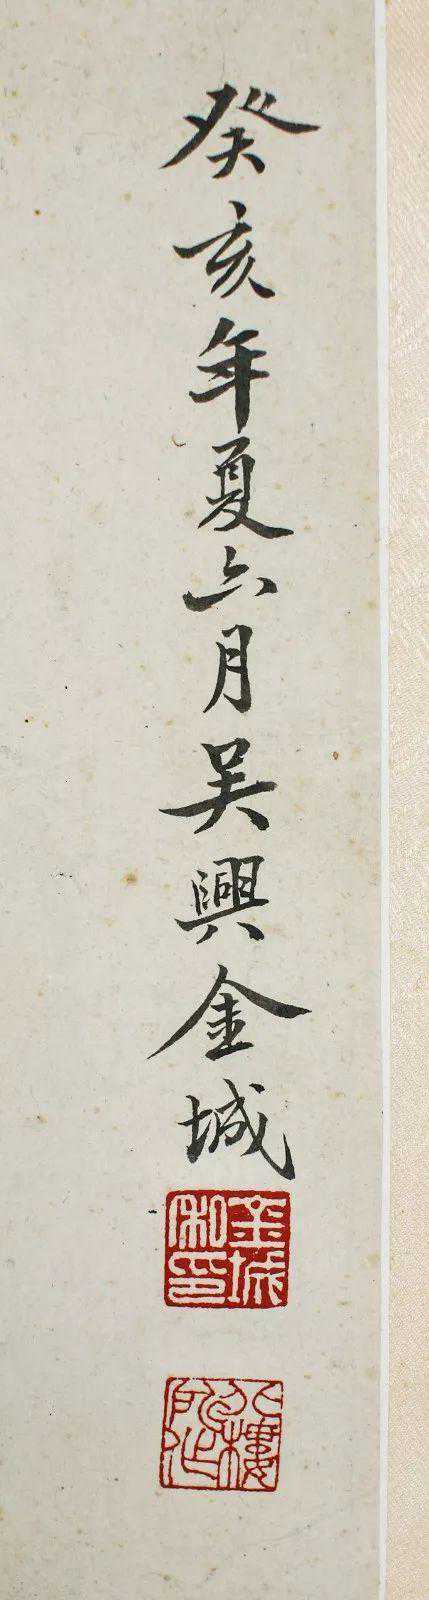 癸亥年夏六月吴興金城
金城私印